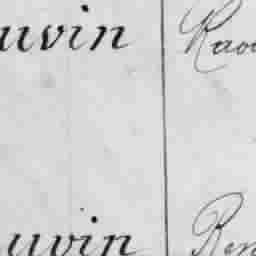 uvin Raou
uvin Ren